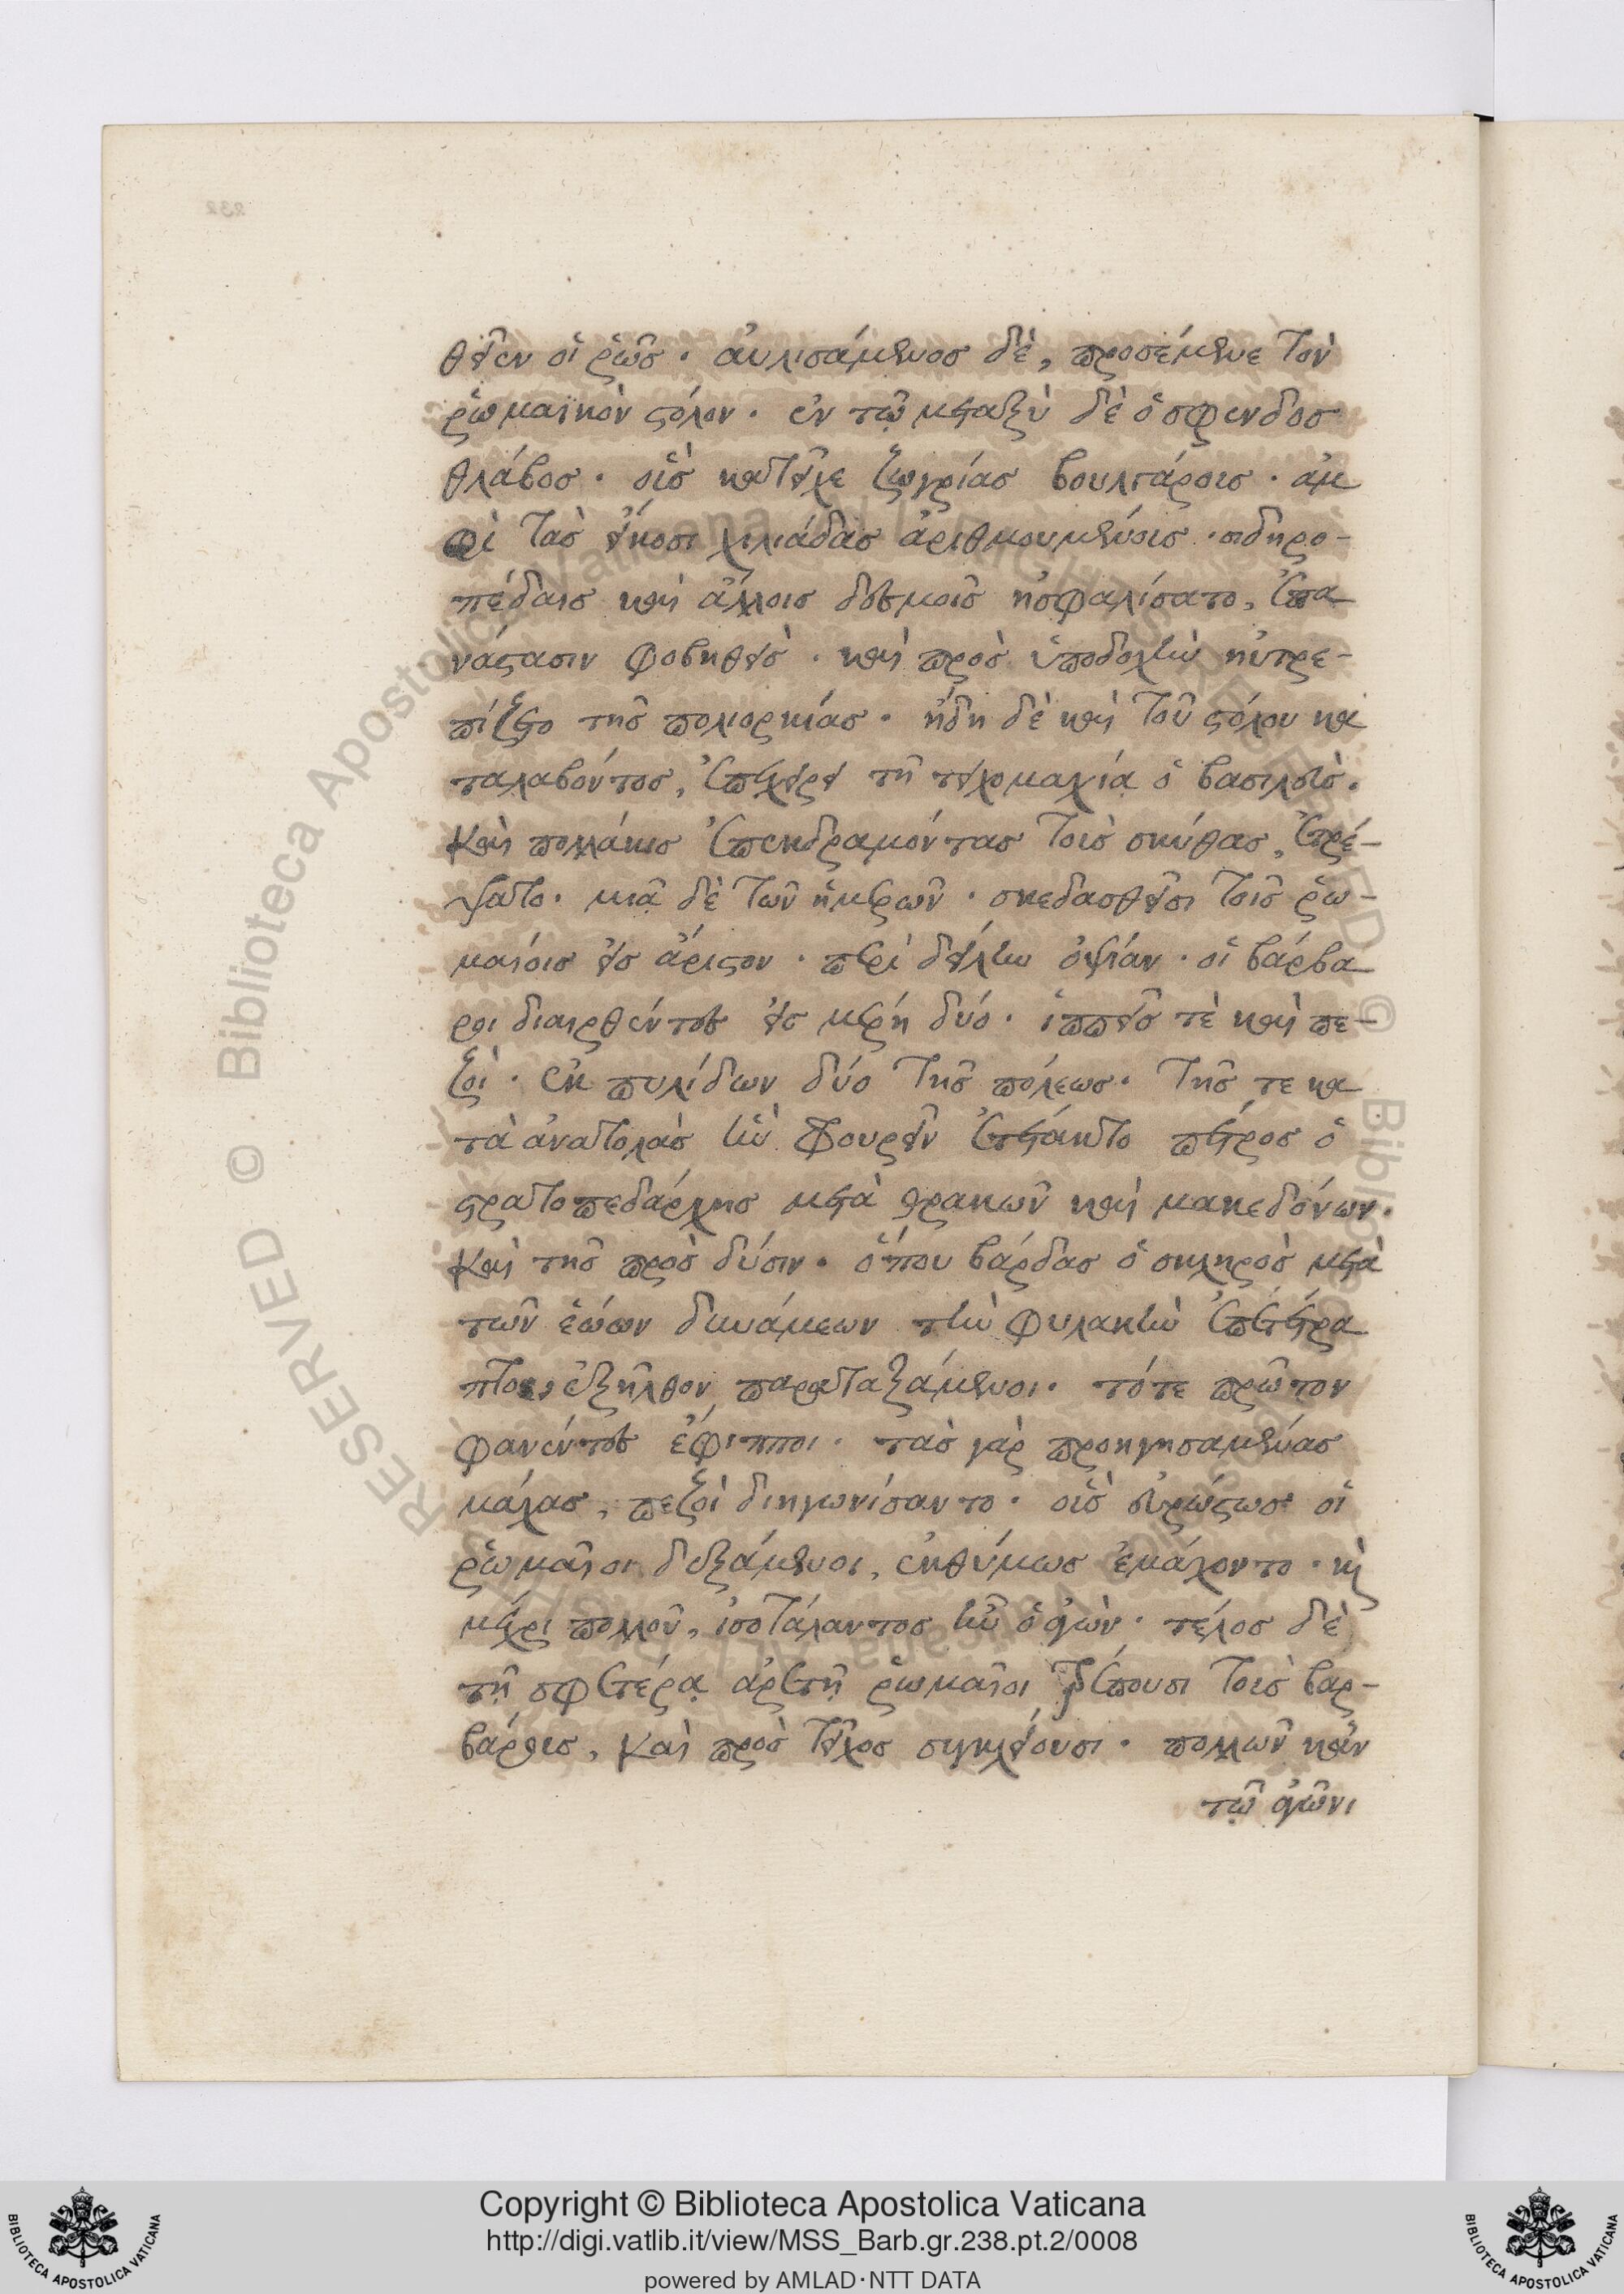 θεῖεν οἱ ῥῶς · αὐλισάμενος δὲ, προσέμενε τὸν
ῥωμαϊκὸν στόλον · ἐν τῷ μεταξὺ δὲ ὁ σφενδοσ
θλάβος · οὓς κατεῖχε ζωγρίας βουλγάρους · ἀμ
φὶ τὰς εἴκοσι χιλιάδας ἀριθμουμένους · σιδηρο-
πέδαις καὶ ἄλλοις δεσμοῖς ἠσφαλίσατο, ἐπα
νάστασιν φοβηθεὶς · καὶ πρὸς ὑποδοχὴν ηὐτρε-
πίζετο τῆς πολιορκίας · ἤδη δὲ καὶ τοῦ στόλου κα
ταλαβόντος, ἐπεχείρει τῇ τειχομαχίᾳ ὁ βασιλεὺς ·
Καὶ πολλάκις ἐπεκδραμόντας τοὺς σκύθας, ἐτρέ-
ψατο · μιᾷ δὲ τῶν ἡμερῶν · σκεδασθεῖσι τοῖς ῥω-
μαίοις εἰς ἄριστον · περὶ δείλην ὀψίαν · οἱ βάρβα
ροι διαιρθέντες εἰς μέρη δύο · ἱππεῖς τὲ καὶ πε-
ζοὶ · ἐκ πυλίδων δύο τῆς πόλεως · τῆς τε κα
τὰ ἀνατολὰς ἣν φρουρεῖν ἐτέτακτο πέτρος ὁ
στρατοπεδάρχης μετὰ θρακῶν καὶ μακεδόνων ·
Καὶ τῆς πρὸς δύσιν · ὅπου βάρδας ὁ σκληρὸς μετὰ
τῶν ἑῴων δυνάμεων τὴν φυλακὴν ἐπετέτρα
πτο, ἐξῆλθον παραταξάμενοι · τότε πρῶτον
φανέντες ἔφιπποι · τὰς γὰρ προηγησαμένας
μάχας, πεζοὶ διηγωνίσαντο · οὓς εὐρώστως οἱ
ῥωμαῖοι δεξάμενοι, ἐκθύμως ἐμάχοντο · κ̀
μέχρι πολλοῦ, ἰσοτάλαντος ἦν ὁ ἀγὼν · τέλος δὲ
τῇ σφετέρᾳ ἀρετῇ ῥωμαῖοι τρέπουσι τοὺς βαρ-
βάρους, Καὶ πρὸς τεῖχος συγκλείουσι · πολλῶν κἀν
τῷ ἀγῶνι
232
Copyright © Biblioteca Apostolica Vaticana
http://digi.vatlib.it/view/MSS_Barb.gr.238.pt.2/0008
powered by AMLAD·NTT DATA
BIBLIOTECA APOSTOLICA VATICANA
BIBLIOTECA APOSTOLICA VATICANA